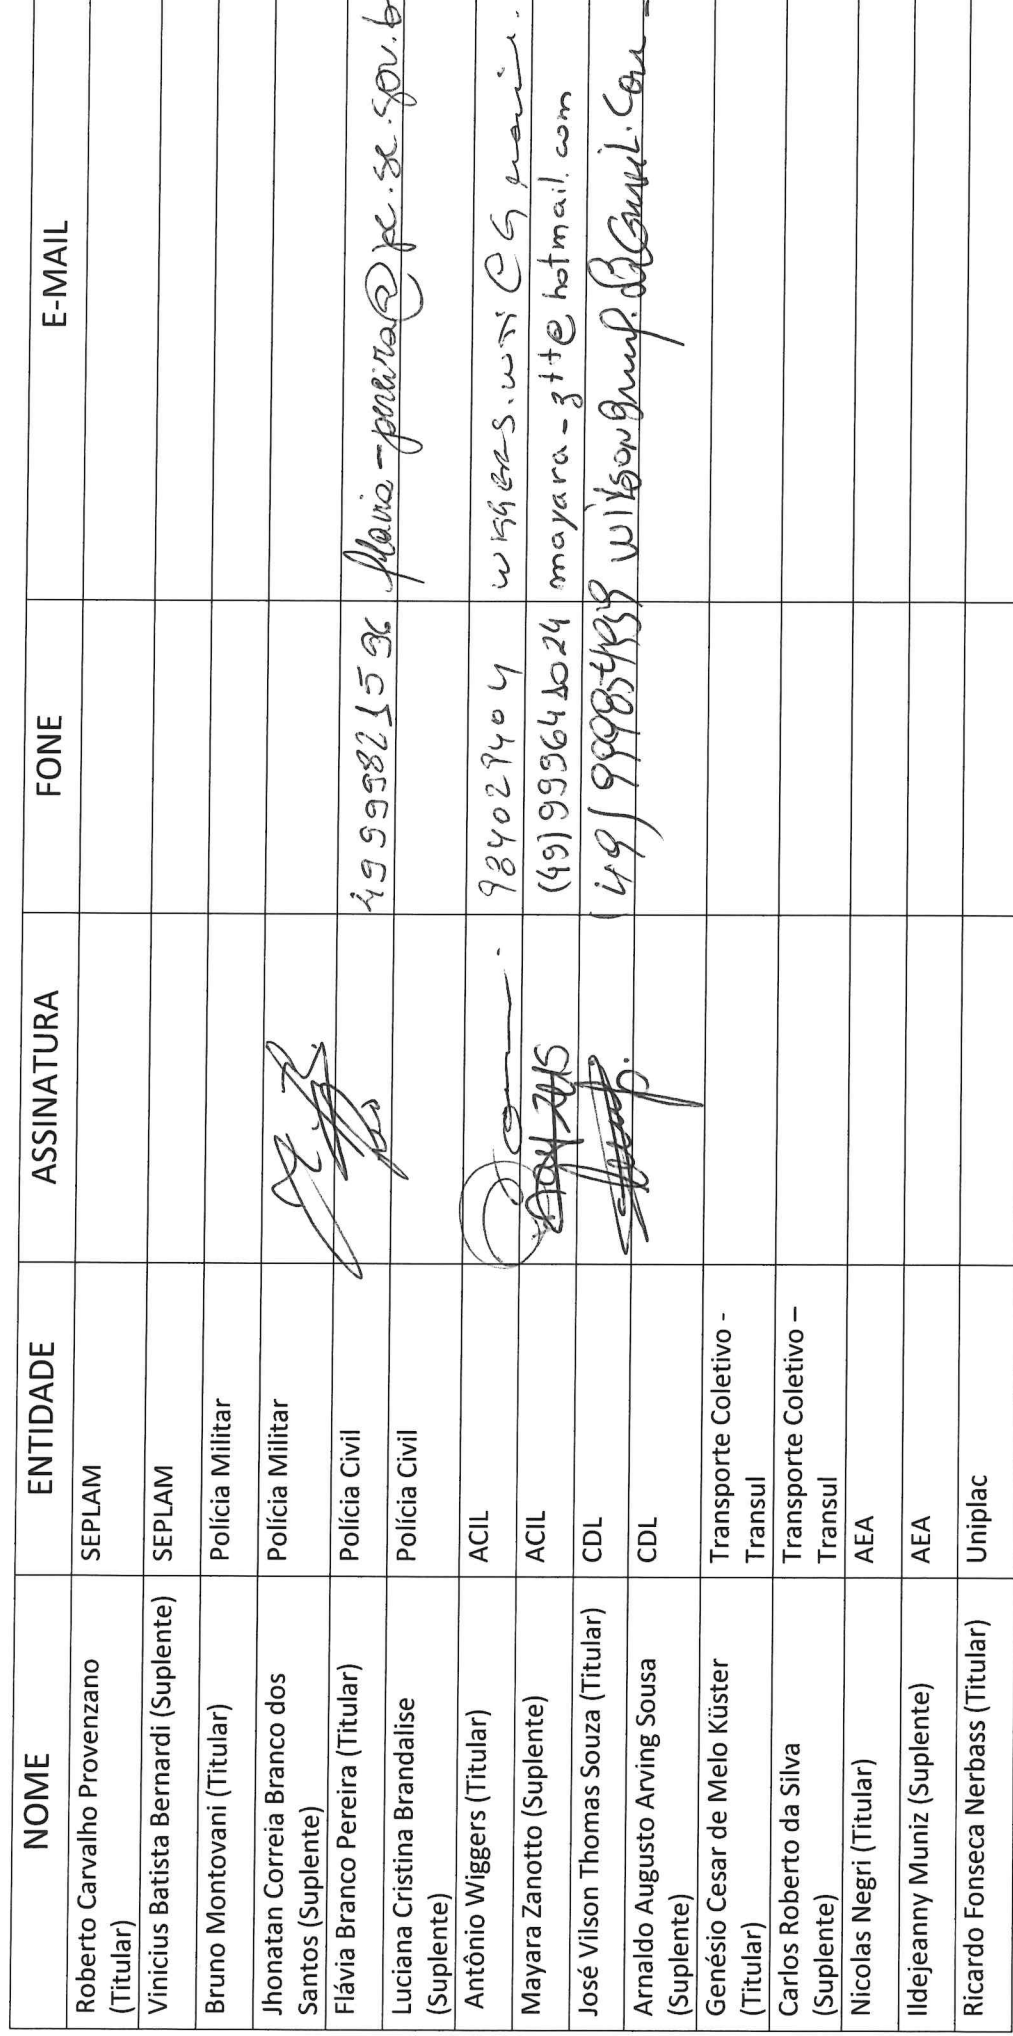 NOME ENTIDADE ASSINATURA FONE E-MAIL
Roberto Carvalho Provenzano
(Titular) SEPLAM
Vinicius Batista Bernardi (Suplente) SEPLAM
Bruno Montovani (Titular) Polícia Militar
Jhonatan Correia Branco dos
Santos (Suplente) Polícia Militar
Flávia Branco Pereira (Titular) Polícia Civil 49999821596 flavia-pereira@pc.sc.gov.b
Luciana Cristina Brandalise
(Suplente) Polícia Civil
Antônio Wiggers (Titular) ACIL
Mayara Zanotto (Suplente) ACIL (49) 999641024 mayara-3tt@hotmail.com
José Vilson Thomas Souza (Titular) CDL
Arnaldo Augusto Arving Sousa
(Suplente) CDL
Genésio Cesar de Melo Küster
(Titular) Transporte Coletivo -
Transul
Carlos Roberto da Silva
(Suplente) Transporte Coletivo –
Transul
Nicolas Negri (Titular) AEA
Ildejeanny Muniz (Suplente) AEA
Ricardo Fonseca Nerbass (Titular) Uniplac